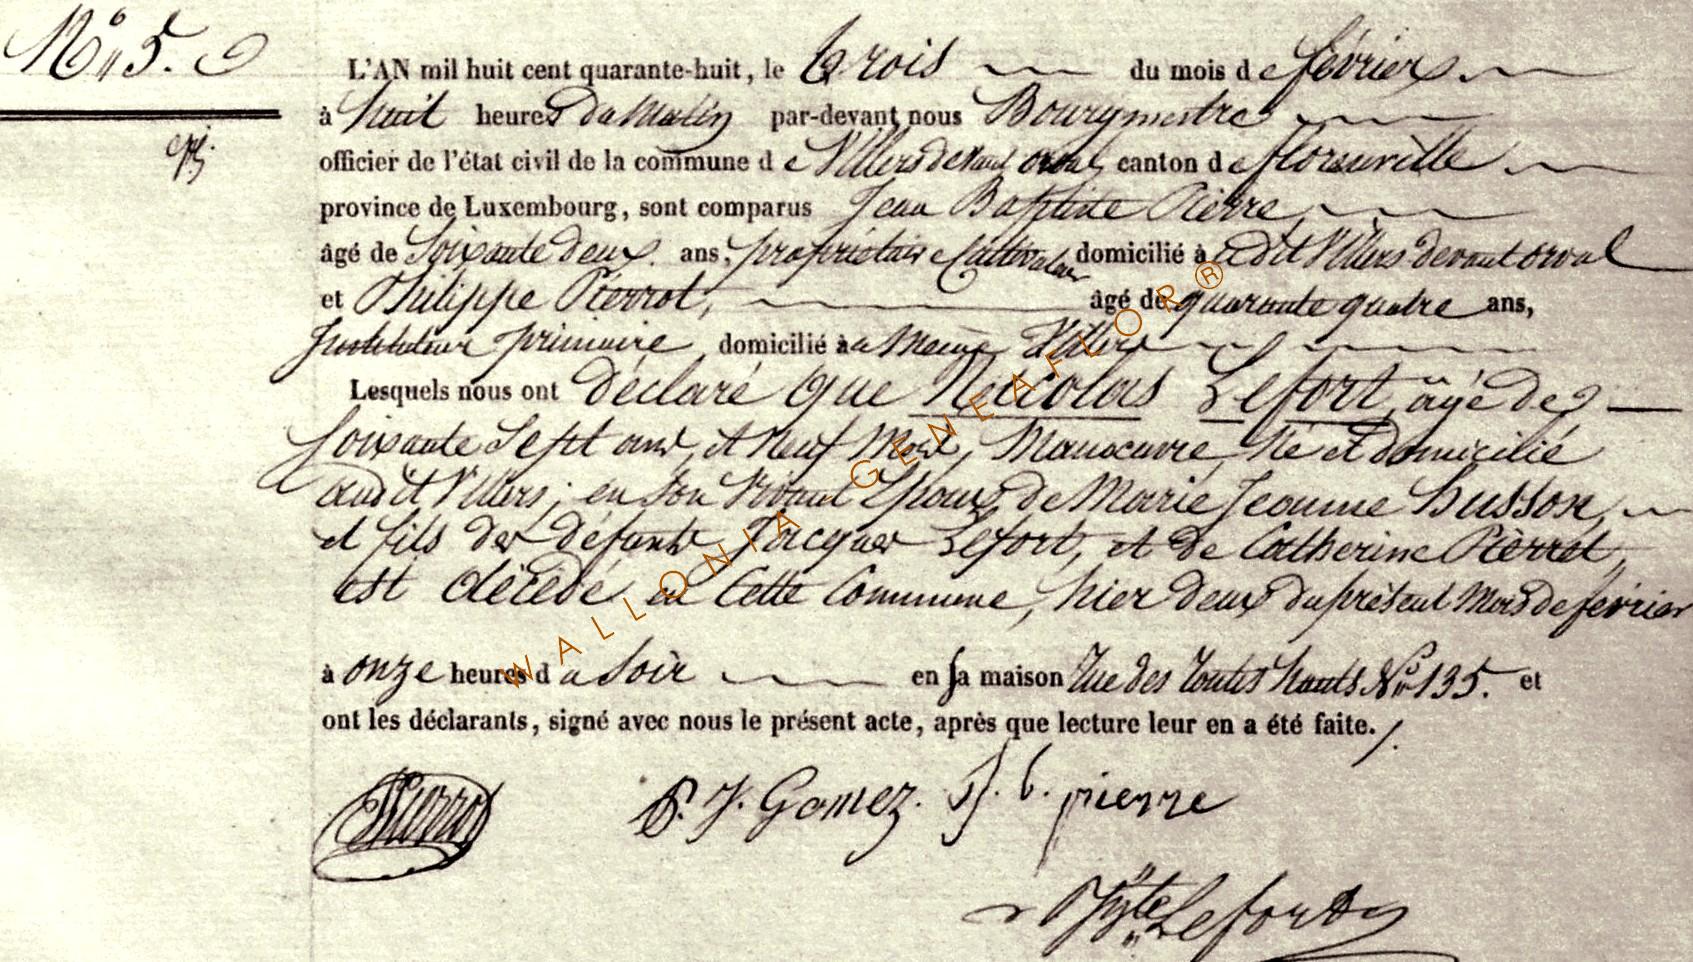 N° 5.
L'AN mil huit cent quarante-huit, le trois du mois de février
à huit heures du Matin par-devant nous Bourgmestre
officier de l'état civil de la commune de Villers devant orval canton de florenville
province de Luxembourg, sont comparus Jean Baptiste Pierre,
âgé de Soixante deux ans, propriétaire Cultivateur domicilié à audit Villers devant orval
et Philippe Pierrot, âgé de quarante quatre ans,
Instituteur primaire domicilié à au Même Villers
Lesquels nous ont déclaré que Nicolas Lefort, âgé de
Soixante Sept ans, et Neuf Mois, Manoeuvre, Né et domicilié
audit Villers, en Son Vivant Epoux de Marie Jeanne Husson,
et fils des défunts Jacques Lefort, et de Catherine Pierret,
est décédé en Cette Commune, hier deux du présent Mois de février
à onze heures du Soir en Sa maison Rue des Hauts N° 135. et
ont les déclarants, signé avec nous le présent acte, après que lecture leur en a été faite./.
Pierrot P. J. Gomez. J. b. pierre
Lefort
WALLONIA GENEAFLOR®